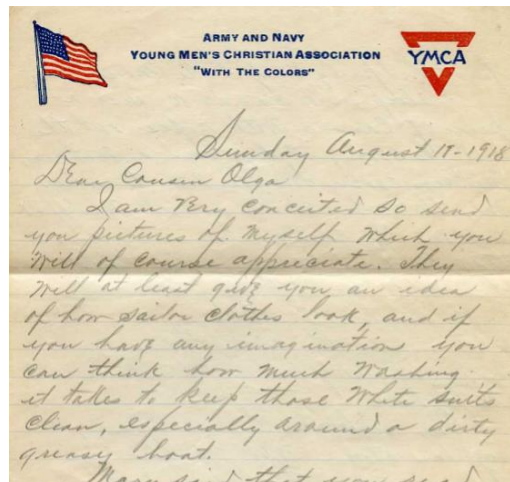 ARMY AND NAVY
YOUNG MEN'S CHRISTIAN ASSOCIATION
"WITH THE COLORS"
YMCA
Sunday August 18-1918
Dear Cousin Olga
I am very conceited so send
you pictures of myself which you
will of course appreciate. They
will at least give you an idea
of how sailor clothes look, and if
you have any imagination you
can think how much washing
it takes to keep those white suits
clean, especially around a dirty
greasy boat.
Mary said that you